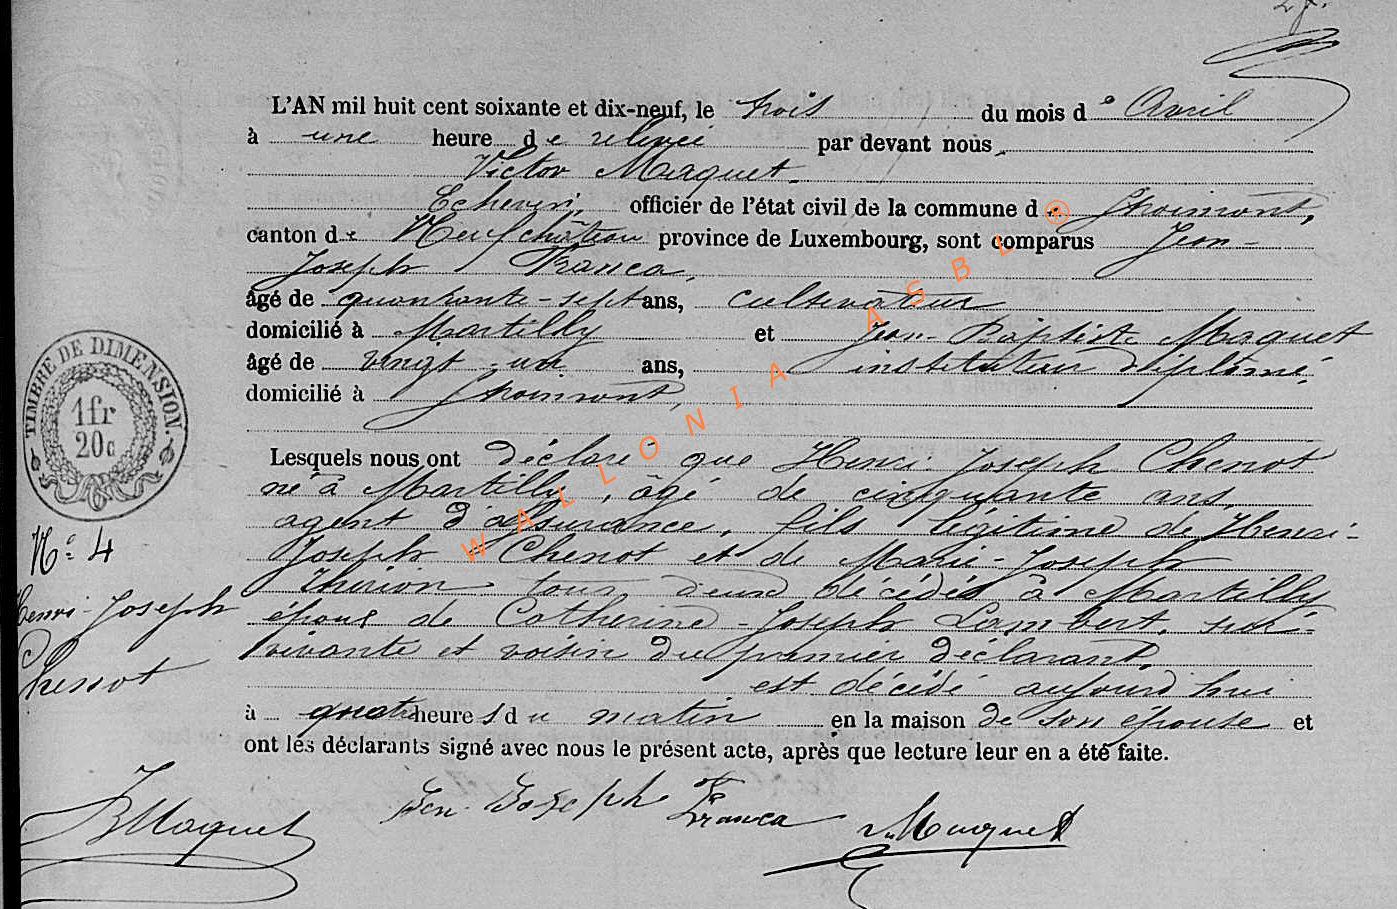 27.
L'AN mil huit cent soixante et dix-neuf, le trois du mois d' Avril
à une heure de relevée par devant nous
Victor Maquet
Echevin, officier de l'état civil de la commune de Straimont,
canton de Neufchâteau province de Luxembourg, sont comparus Jean-
Joseph Franca,
âgé de quarante-sept ans, cultivateur
domicilié à Martilly et Jean-Baptiste Maquet
âgé de vingt-un ans, instituteur diplômé,
domicilié à Straimont,
TIMBRE DE DIMENSION.
1fr
20c
Lesquels nous ont déclaré que Henri-Joseph Chenot
né à Martilly, âgé de cinquante ans,
agent d'assurance, fils légitime de Henri-
N° 4
Joseph Chenot et de Marie-Joseph
Thirion tous deux décédés à Martilly
Henri-Joseph
époux de Catherine-Joseph Lambert,
vivante et voisin du premier déclarant,
Chenot
est décédé aujourd'hui
à quatre heures du matin en la maison de son épouse et
ont les déclarants signé avec nous le présent acte, après que lecture leur en a été faite.
JBMaquet Jean Joseph Franca V Maquet
WALLONIA ASBL ®